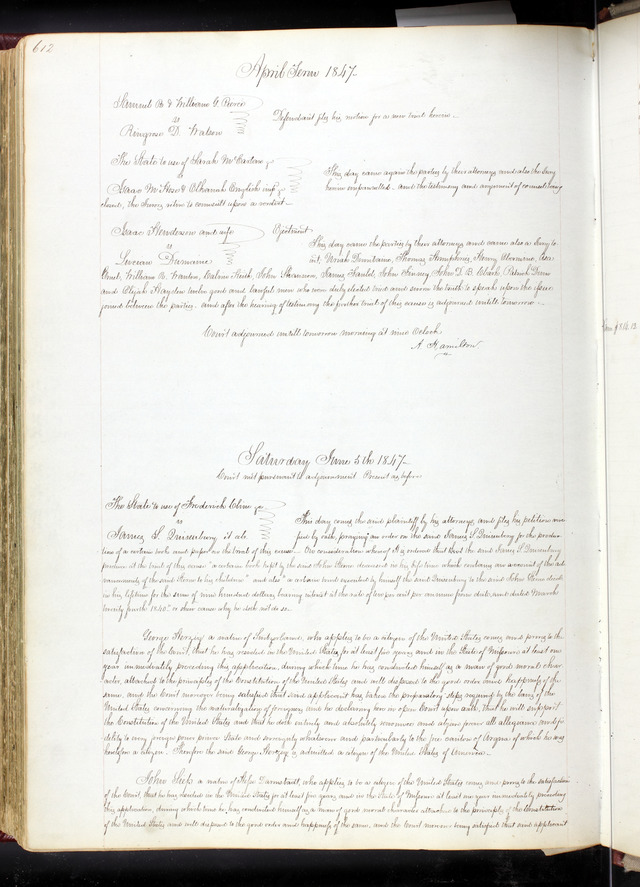 612
April Term 1847
Samuel B & William G. Pierce
vs
Rengrose D. Watson
Defendant files his motion for a new trial herein.
The State to use of Sarah McCarlow
vs
Isaac McHose & Elkanah English impl
This day came again the parties by their attorneys and also the Jury
herein empannelled. and the testimony and argument of counsel being
closed, the Jurors retire to consult upon a verdict
Isaac Henderson and wife
vs
Ejectment
This day came the parties by their attorneys and came also a Jury to
wit,
and Elijah Hayden twelve good and lawful men who were duly elected tried and sworn the truth to speak upon the issue
joined between the parties. and after the hearing of testimony the further trial of this cause is adjourned untill tomorrow.
Court adjourned untill tomorrow morning at nine Oclock
A. Hamilton
Saturday June 5th 1847
Court met pursuant to adjournment Present as before
The State to use of Frederick
vs
James S. Quisenbury et als.
This day comes the said plaintiff by his attorneys, and files his petition veri
fied by oath, praying an order on the said James S. Quisenbury for the produc
tion of a certain book and paper on the trial of this cause. On consideration whereof it is ordered that the said James S. Quisenbury
produce at the trial of this cause "a certain book kept by the said John deceased in his life time which contains an account of the ad
vancements of the said to his children" and also "a certain bond executed by himself the said Quisenbury to the said John decd
in his lifetime for the sum of nine hundred dollars, bearing interest at the rate of ten per cent per annum from date, and dated March
1840." or shew cause why he doth not do so.
George a native of Switzerland, who applies to be a citizen of the United States, comes and proves to the
satisfaction of the Court, that he has resided in the United States for at least five years, and in the State of Missouri at least one
year immediately preceding this application, during which time he has conducted himself as a man of good moral char
acter, attached to the principles of the Constitution of the United States and well disposed to the good order and happiness of the
same, and the Court moreover being satisfied that said applicant has taken the preparatory steps required by the laws of the
United States concerning the naturalization of foreigners, and he declaring here in open Court upon oath, that he will support
the Constitution of the United States and that he doth entirely and absolutely renounce and abjure forever all allegiance and fi
delity to every foreign power Prince State and sovereignty whatsoever and particularly to the free canton of Argau of which he was
heretofore a citizen. Therefore the said George is admitted a citizen of the United States of America.
John a native of Hesse Darmstadt, who applies to be a citizen of the United States comes and proves to the satisfaction
of the Court, that he has resided in the United States for at least five years and in the State of Missouri at least one year immediately preceding
this application, during which time he has conducted himself as a man of good moral character attached to the principles of the Constitution
of the United States and well disposed to the good order and happiness of the same, and the Court moreover being satisfied that said applicant